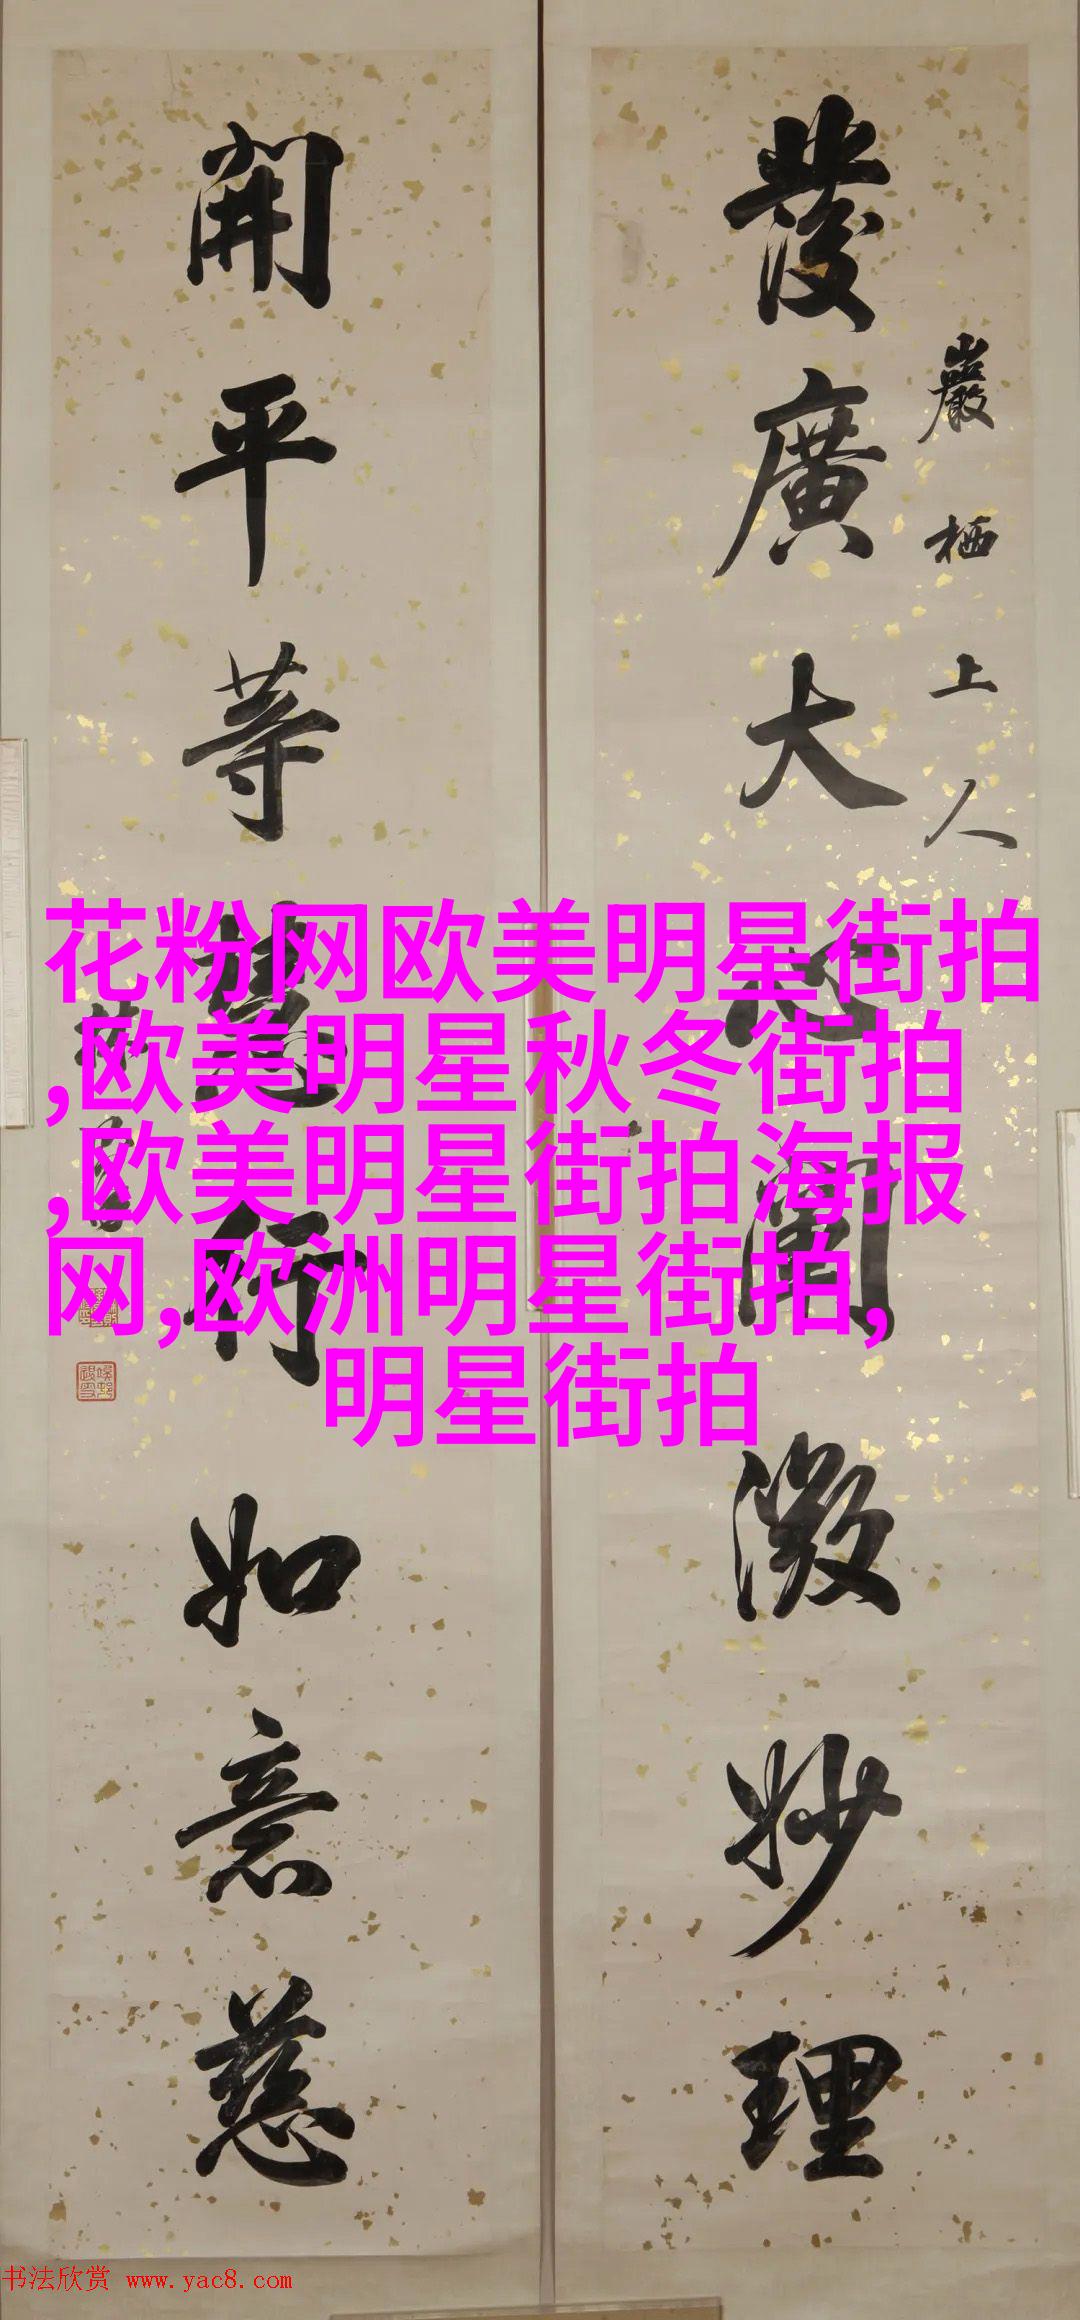 發廣大心闡微妙理
巖栖上人
開平等慧行如意慈
花粉网欧美明星街拍
,欧美明星秋冬街拍
,欧美明星街拍海报
网,欧洲明星街拍,
明星街拍
书法欣赏 www.yac8.com